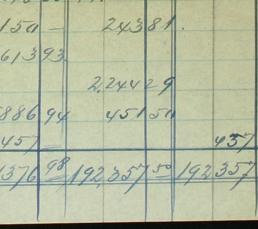 150 - 24381.
61393
2,24429
886 94 45150
457 457
1376 98 192,357 50 192,357